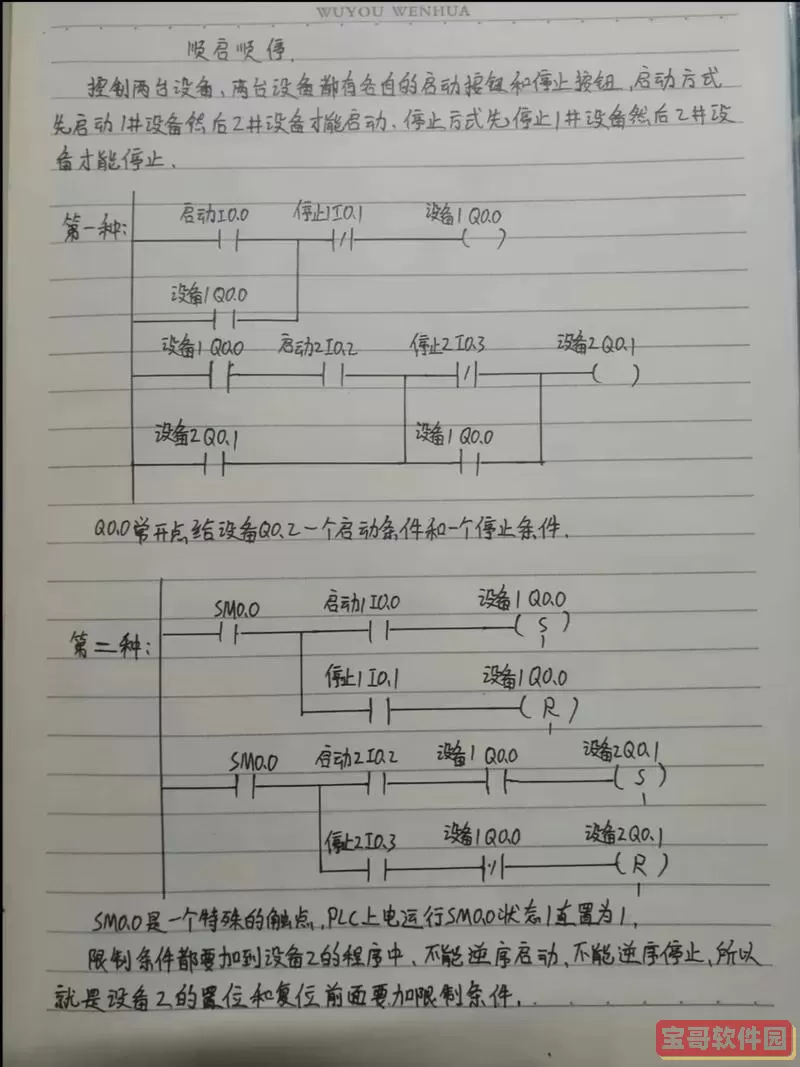 WUYOU WENHUA
顺启顺停.
控制两台设备、两台设备都有各自的启动按钮和停止按钮,启动方式
先启动1井设备然后2井设备才能启动、停止方式先停止1井设备然后2井设
备才能停止.
第一种:
启动I0.0 停止1I0.1 设备1 Q0.0
设备1 Q0.0
设备1 Q0.0 启动2I0.2 停止2I0.3 设备2Q0.1
设备2Q0.1 设备1 Q0.0
Q0.0常开点给设备Q0.2一个启动条件和一个停止条件.
第二种:
SM0.0 启动1I0.0 设备1Q0.0
S
1
停止1I0.1 设备1Q0.0
R
1
SM0.0 启动2I0.2 设备1 Q0.0 设备2Q0.1
S
1
停止2I0.3 设备1Q0.0 设备2Q0.1
R
1
SM0.0是一个特殊的触点,PLC上电运行SM0.0状态1直置为1.
限制条件都要加到设备2的程序中、不能逆序启动、不能逆序停止、所以
就是设备2的置位和复位前面要加限制条件.
宝哥软件园